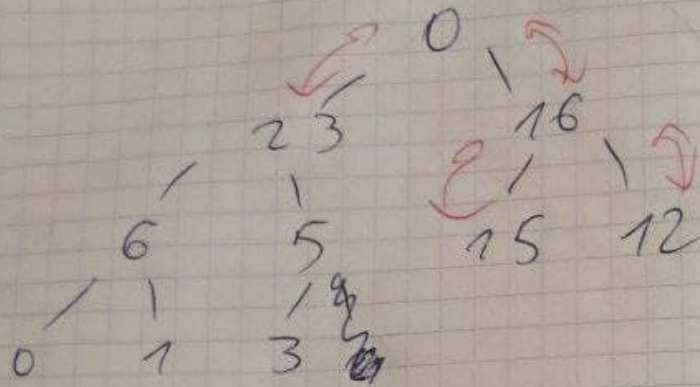 0
23 16
6 5 15 12
0 1 3